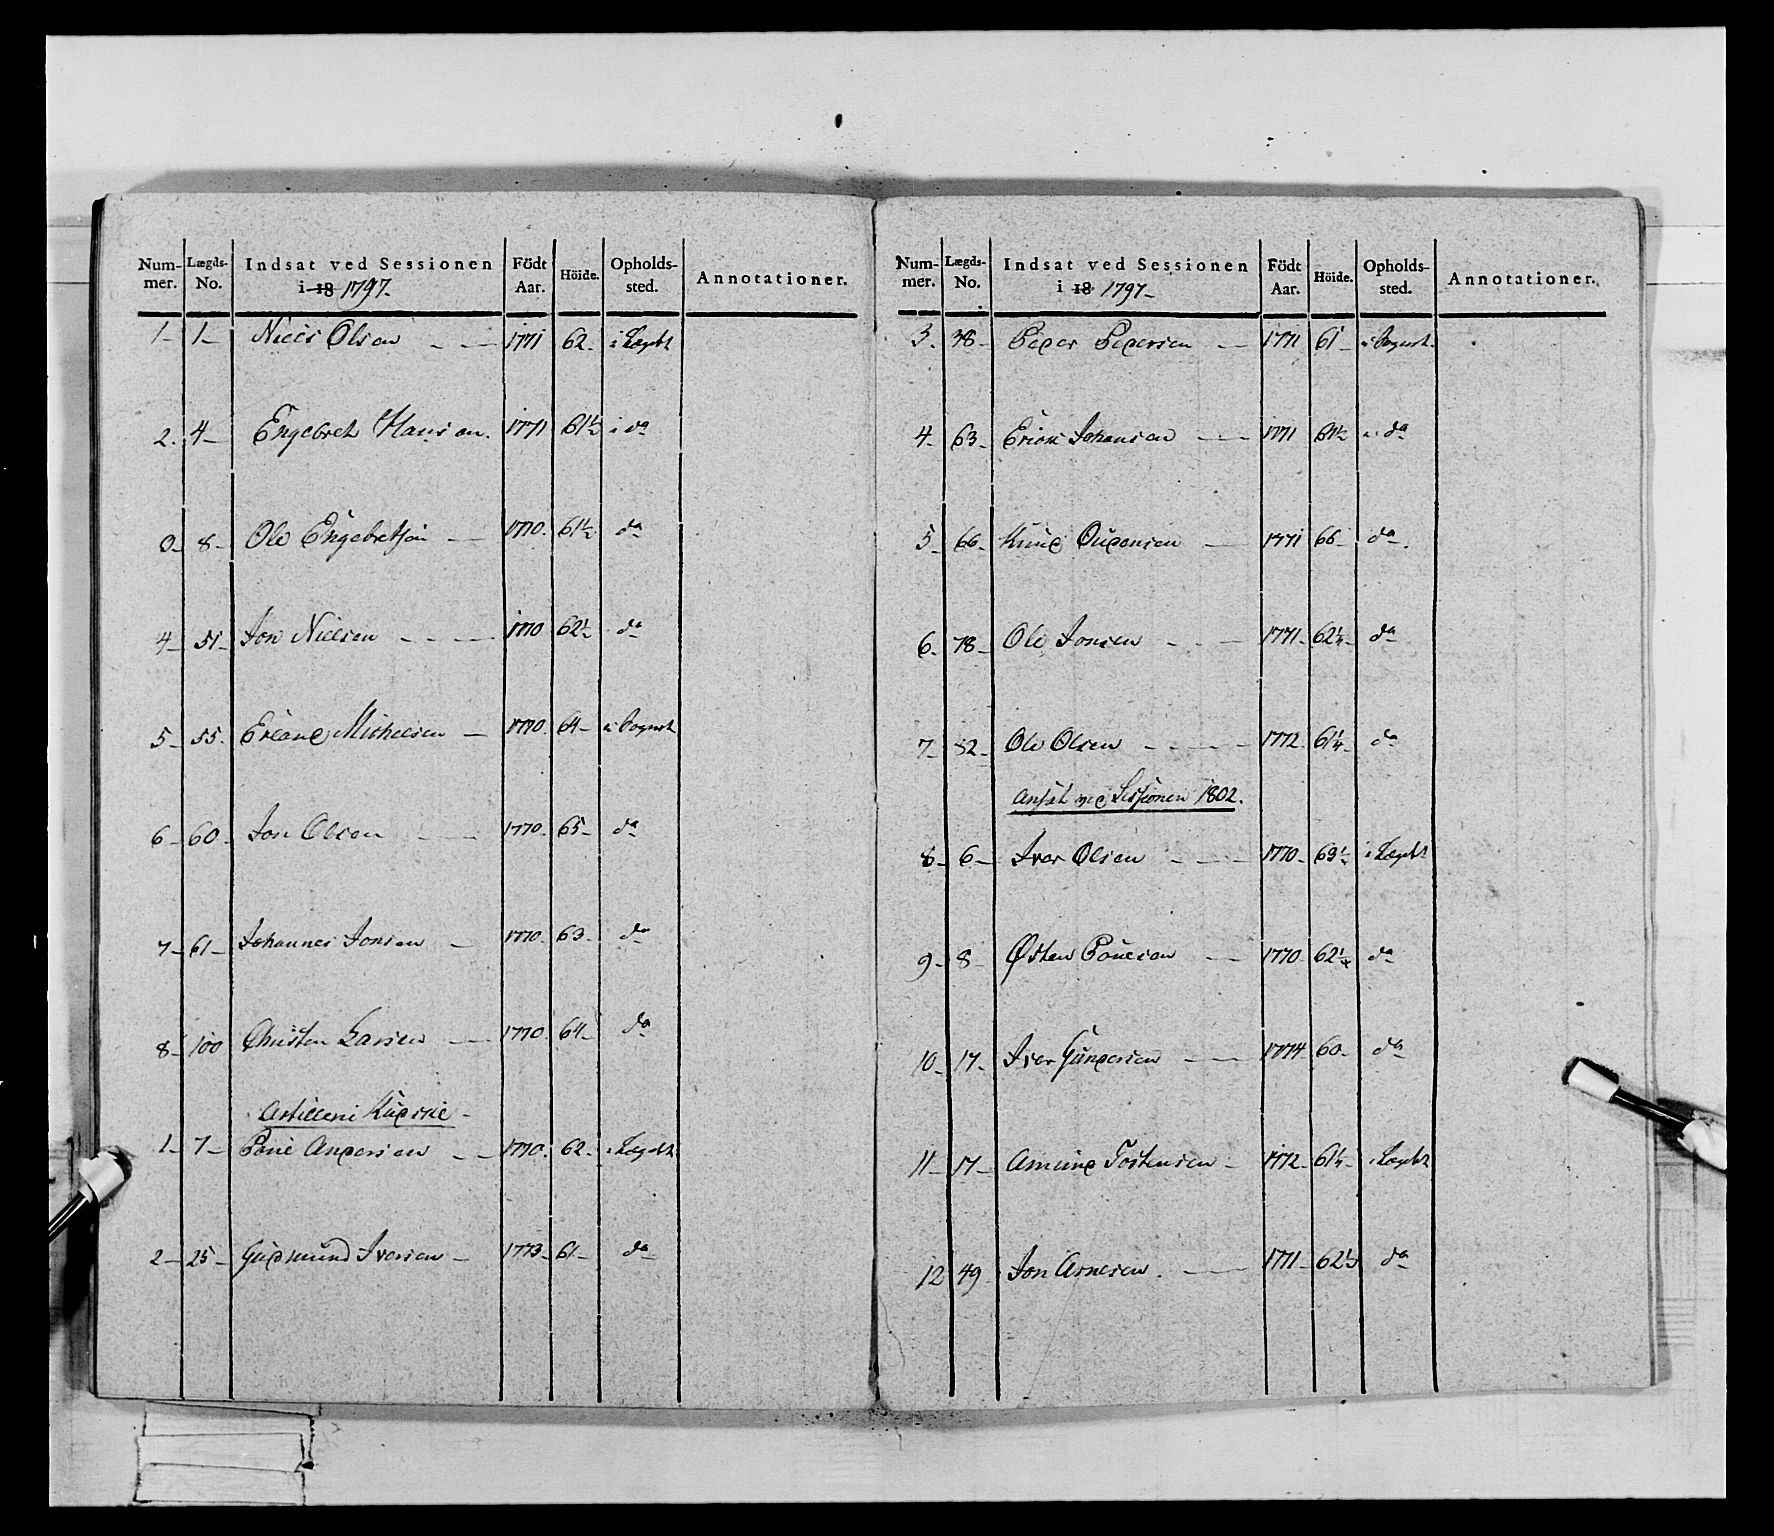 Num- Lægds- Indsat ved Sessionen Födt Höide. Opholds- Annotationer.
mer. No. i 18 1797. Aar. sted.
1 - 1 - Niels Olsen - - 1771 62 - i Lægdet
2. 4 - Engebret Hansen. 1771 61½ i do
8 - Ole Engebretsen - 1770. 61½ do
4 - 51 - Jon Nielsen - - - 1770 62½ do
5 - 55. Erland Michelsen - 1770. 64 - i Sognet
6 - 60 - Jon Olsen - - 1770. 65 - do
7 - 61 - Johannes Jonsen - 1770. 63 - do
8 - 100 Christen Larsen - - 1770. 64 - do
Artilleri Kudske -
1 - 7 - Povel Andersen - - 1770. 62 - i Lægdet
2 - 25 - Gudmund Iversen - 1773 - 61 - do
Num- Lægds- Indsat ved Sessionen Födt Höide. Opholds- Annotationer.
mer. No. i 18 1797 - Aar. sted.
3. 38 - Peder Pedersen - - 1771 61 - i Sognet.
4 - 63 - Erick Johansen - - 1771 61½ i do
5 - 66 - Knud Oudensen - 1771 66 - do.
6 - 78 - Ole Jonsen - - - 1771 - 62¼ - do
7 - 82 - Ole Olsen - - - - 1772. 61¼ - do
Ansat ved Sessionen 1802.
8 - 6 - Iver Olsen - - - 1770 - 63½ i Lægdet
9 - 8 - Østen Povelsen - - 1770 62¼ do
10 - 17 - Iver Gundersen - - 1774 60 - do
11 - 17 - Amund Tostensen - 1772 - 61¼ - i Lægdet
12 49 Jon Arnesen. - - 1771 - 62½ do